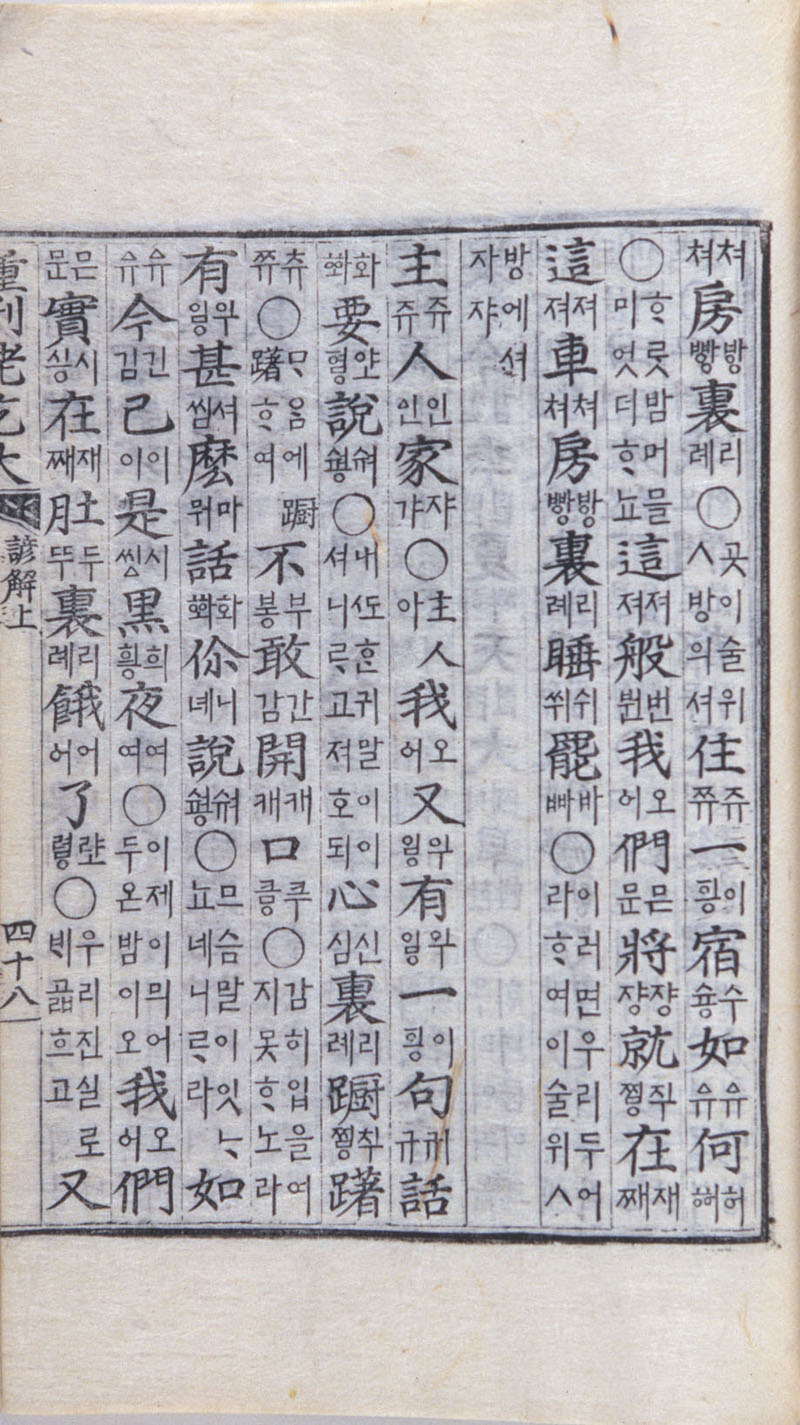 쳐쳐房빵방裏례리○곳이술위ㅅ방의셔住쮸쥬一힝이宿슝수如유유何ᅘᅥ허
○ᄒᆞᄅᆺ밤머믈미엇더ᄒᆞ뇨這져져般붠번我어오們문믄將쟝쟝就쪙쥭在째재
這져져車쳐쳐房빵방裏례리睡쒸쉬罷빠바○이러면우리두어라ᄒᆞ여이술위ㅅ
방에셔자쟈
主쥬쥬人인인家갸쟈○主人아我어오又읳우有읳우一힝이句규귀話
ᅘᅪ화要형얀說쉉숴○내ᄯᅩᄒᆞᆫ귀말이이셔니ᄅᆞ고져호되心심신裏례리蹰쪙쵹躇
쮸츄○ᄆᆞ음에蹰躇ᄒᆞ여不봉부敢감간開캐캐口킁쿠○감히입을여지못ᄒᆞ노라
有읳우甚씸셔麽뭐마話ᅘᅪ화你녜니說쉉숴○므슴말이잇ᄂᆞ뇨네니ᄅᆞ라如
유유今김긴已이이是씽시黑힁희夜여여○이제이믜어두온밤이오我어오們
문믄實싱시在째재肚뚜두裏례리餓어어了령럎○우리진실로ᄇᆡ곫흐고又
重刊老乞大諺解上 四十八